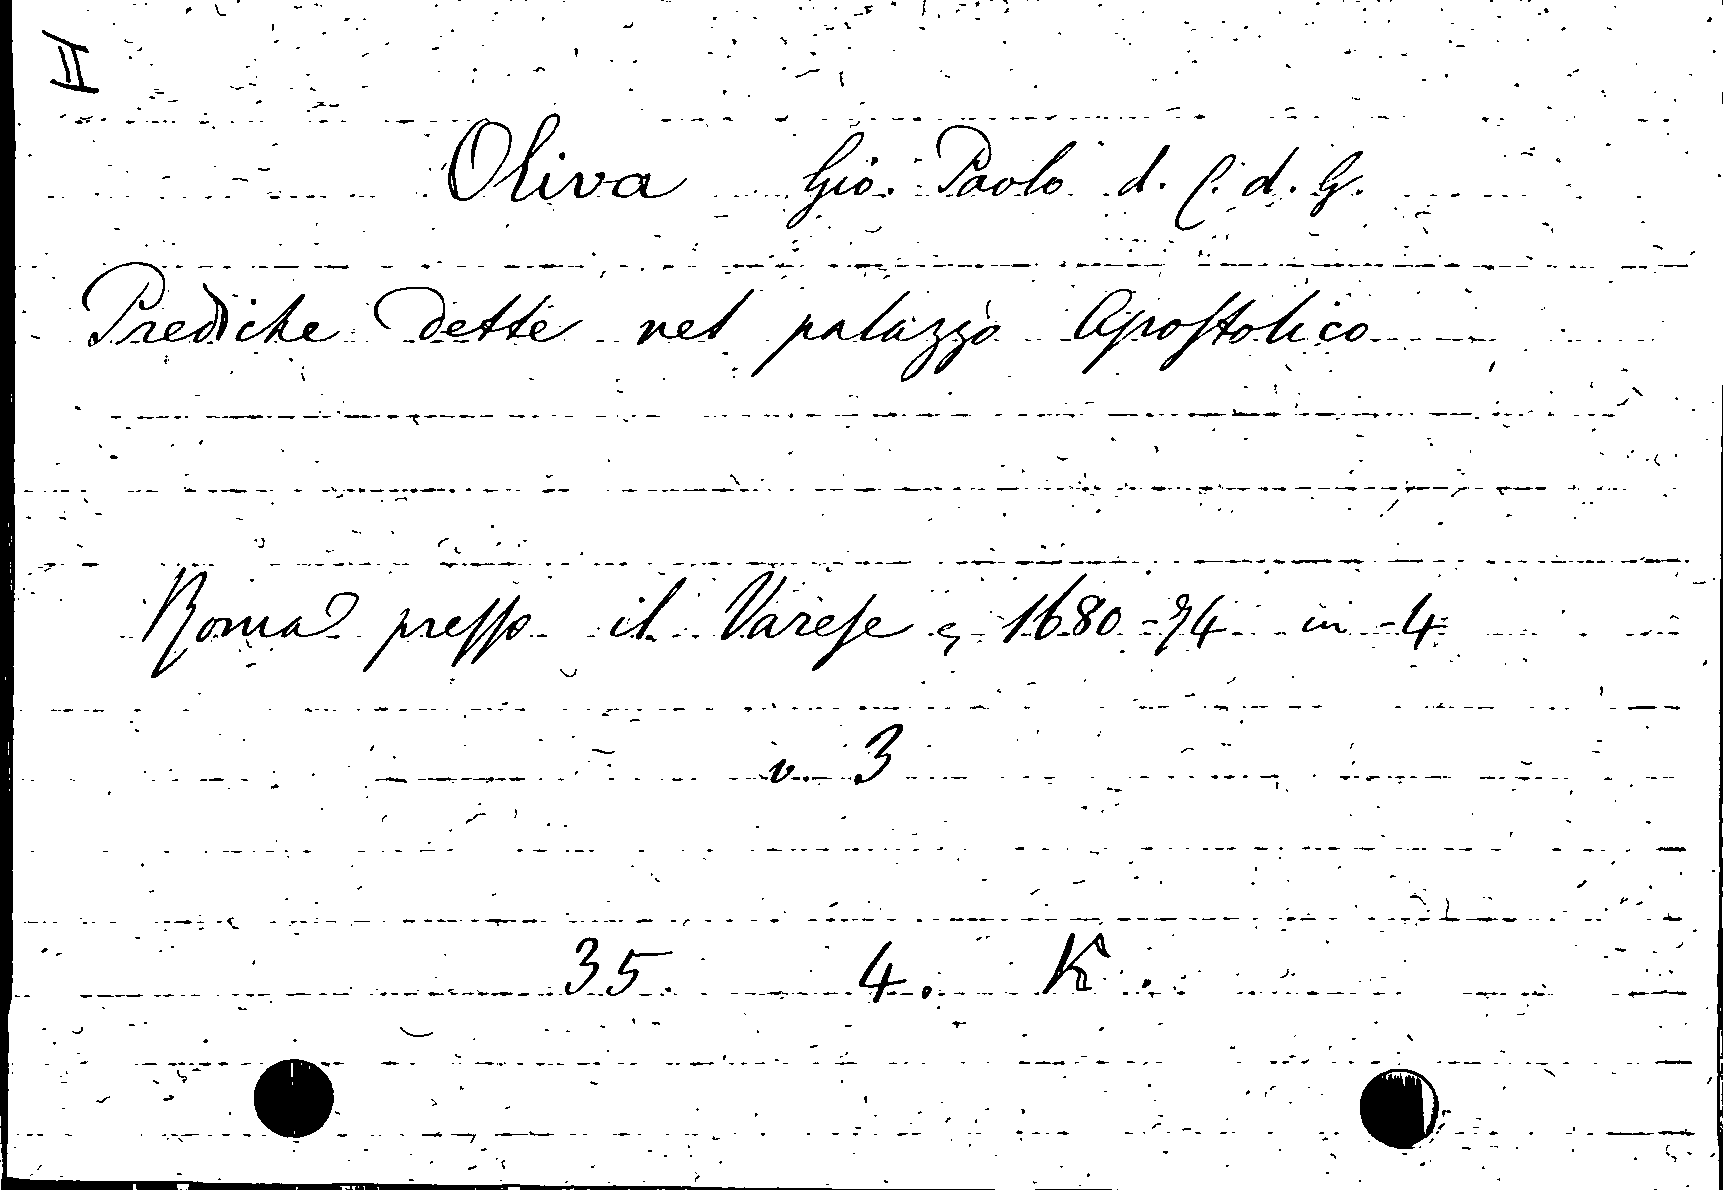 II
Oliva Gio. Paolo d. C. d. G.
Prediche dette nel palazzo Apostolico
Roma presso il Varese, 1680-74 in 4
v. 3
35. 4. K.